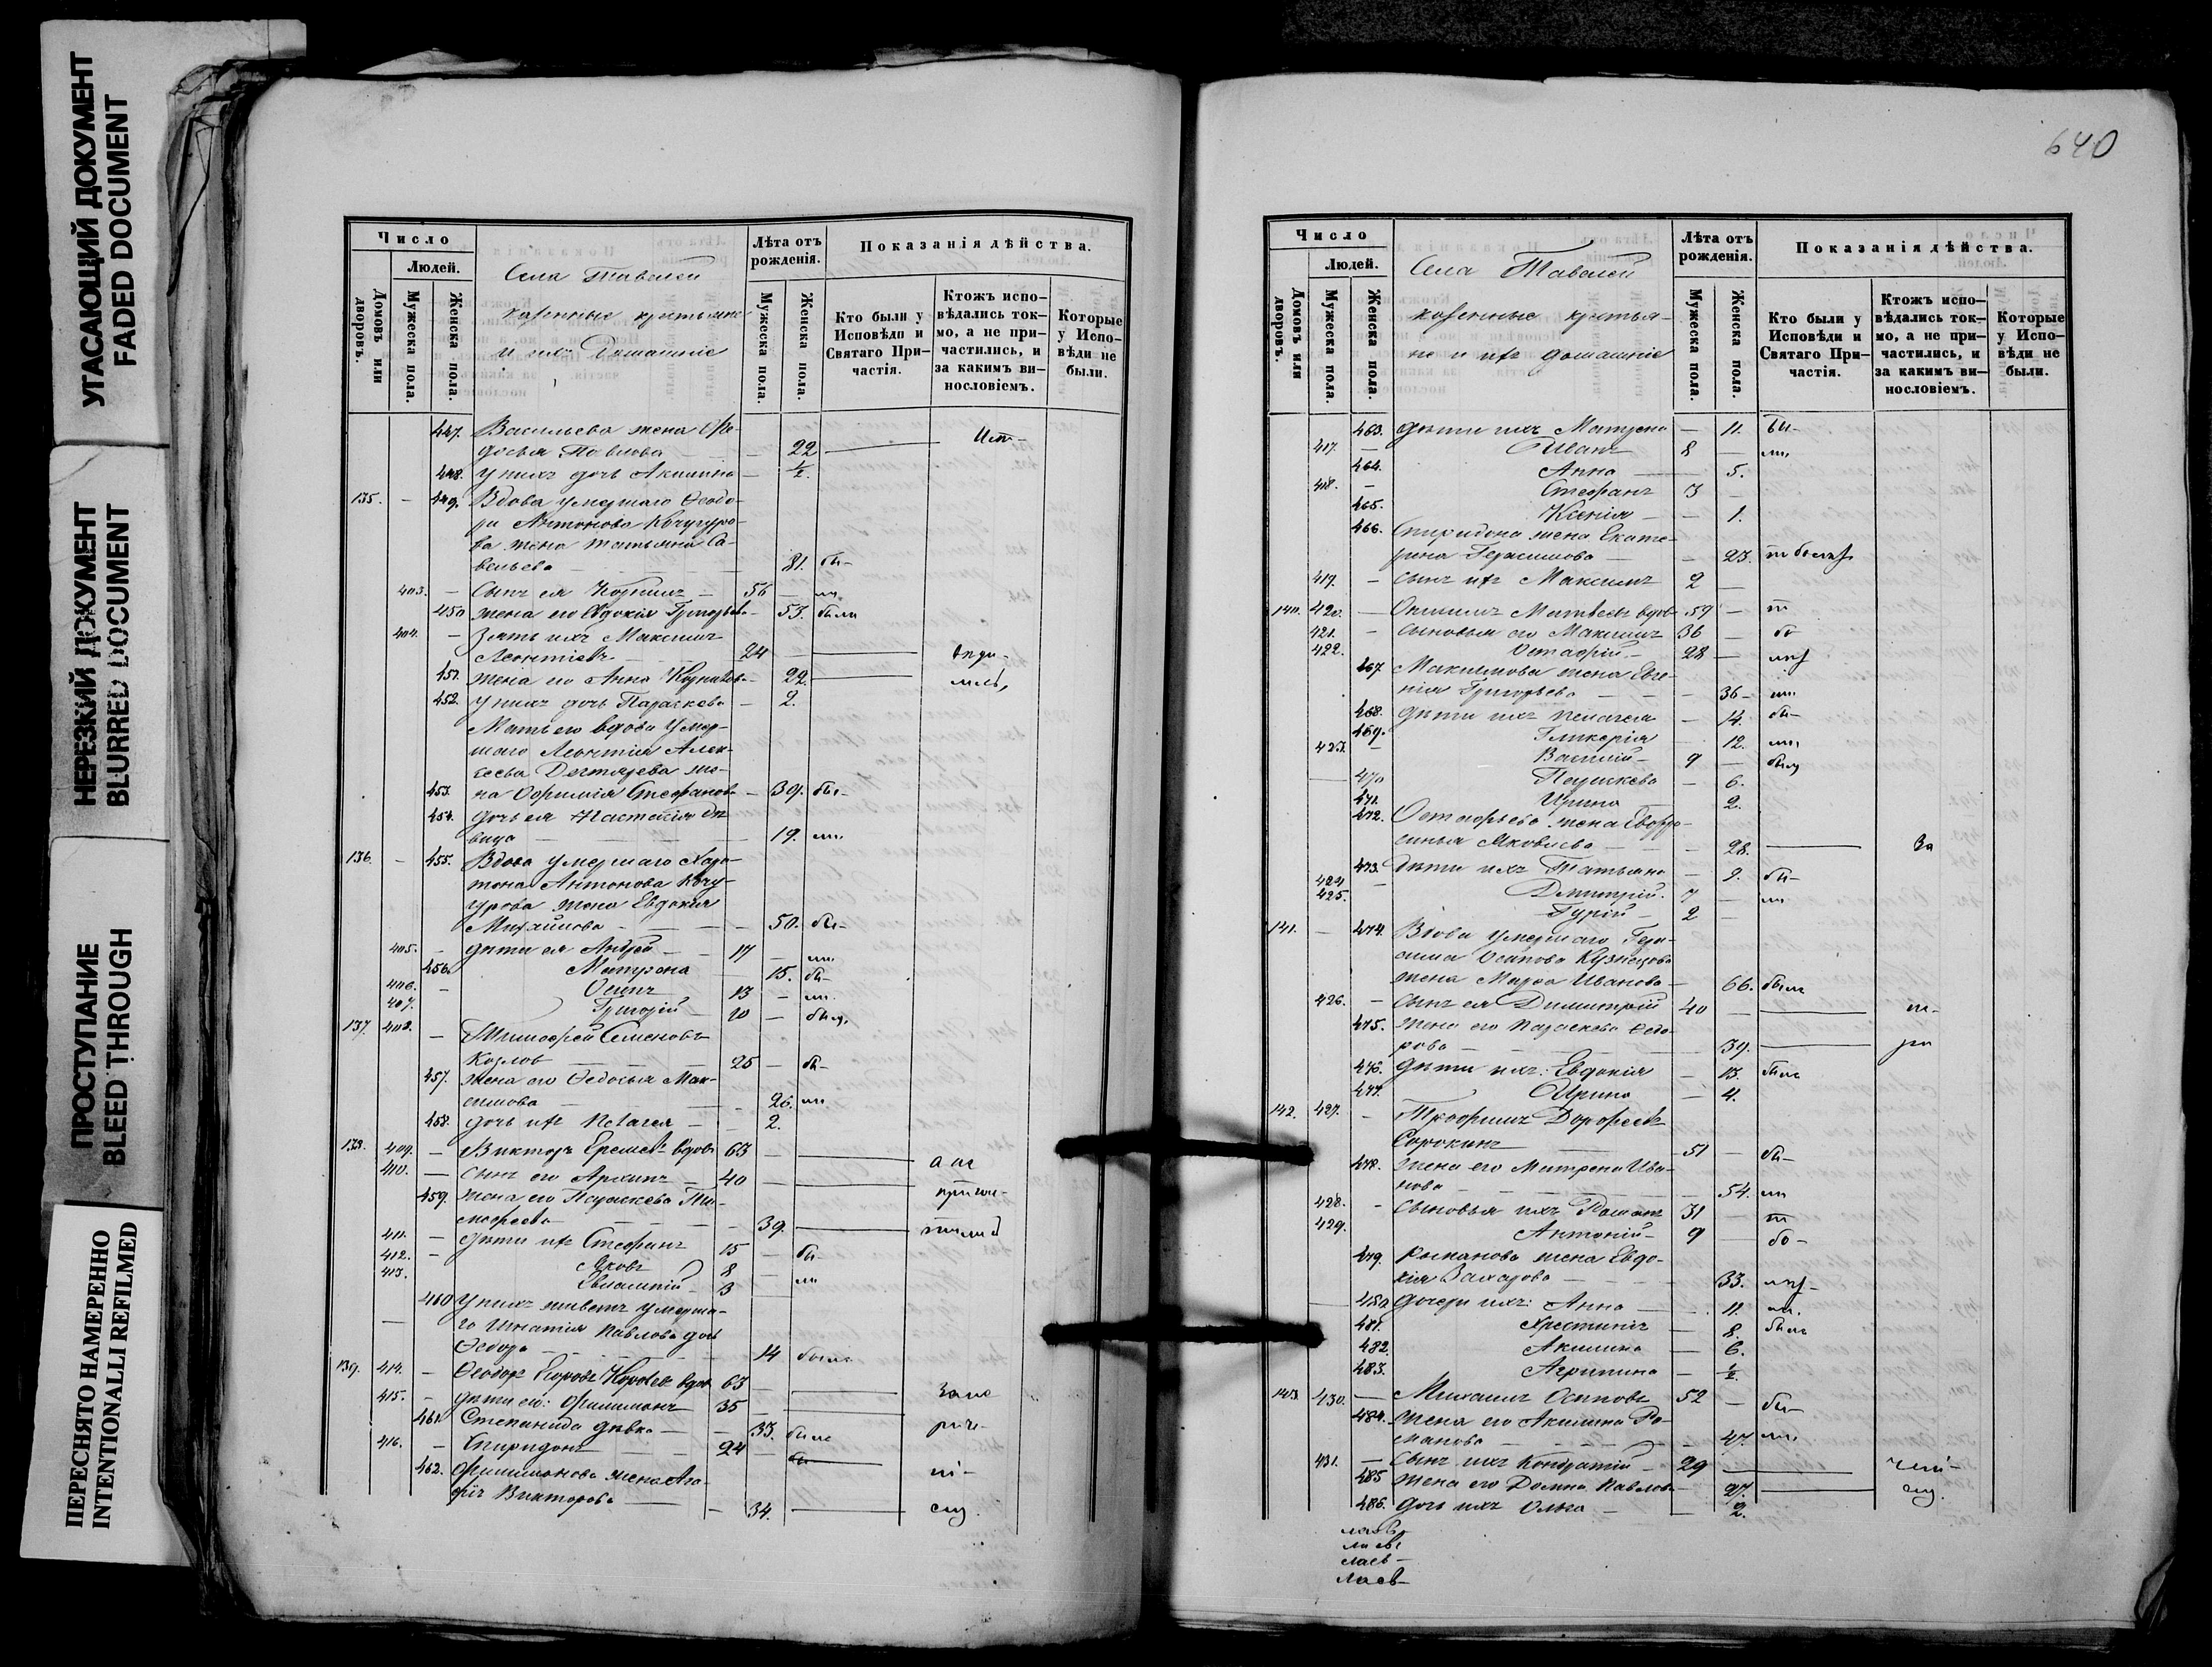 УГАСАЮЩИЙ ДОКУМЕНТ
FADED DOCUMENT
НЕРЕЗКИЙ ДОКУМЕНТ
BLURRED DOCUMENT
ПРОСТУПАНИЕ
BLEED THROUGH
ПЕРЕСНЯТО НАМЕРЕННО
INTENTIONALLI REFILMED
Число
Людей.
Домовъ или дворовъ.
Мужеска пола.
Женска пола.
Села Таволей
казенные крестьяне
и ихъ Домашніе
Лѣта отъ рожденія.
Мужеска пола.
Женска пола.
Показанія дѣйства.
Кто были у Исповѣди и Святаго При-частія.
Ктожъ испо-вѣдались ток-мо, а не при-частились, и за какимъ ви-нословіемъ.
Которые у Испо-вѣди не были.
447. Васильева жена Ѳе-
досья Павлова — 22
448. У нихъ дочь Акилина — ½.
135. — 449. Вдова умершаго Ѳеодо-
ра Антонова Кочугуро-
ва жена Татьяна Са-
вельева — 81. бы-
403. — Сынъ ея 56
450 жена его Евдокія Григорьева — 53. были
404. — Зять ихъ Максимъ
Леонтіевъ — 24
451. жена его Анна — 22.
452. У нихъ дочь Параскева — 2.
Мать его вдова умер-
шаго Леонтія Алек-
сѣева Дегтярева же-
453. на Ефимія Стефанова — 39. бы-
454. дочь ея Настасія дѣ-
вица — 19. ли
136. — 455. Вдова умершаго Хари-
тона Антонова Кочу-
гурова жена Евдокія
Михайлова — 50. бы-
405. — дѣти ея Андрей — 17 — ли
456. Матрона — 15. бы-
406. — Осипъ 13 — ли.
407. Григорій — 10 — были
137. 408. — Тимоѳей Семеновъ
Козловъ — 25 — бы-
457. жена его Ѳедосья Мак-
симова — 26. ли
458. дочь ихъ Пелагея — 2.
138. 409. — Викторъ Еремѣевъ вдовъ 63 —
410. — сынъ его Архипъ — 40 —
459. жена его Параскева Ти-
моѳеева — 39.
411. — дѣти ихъ Стефанъ 15 — бы-
412. — Яковъ 8 — ли
413. Евлампій 3
460 У нихъ живетъ умерша-
го Игнатія Павлова дочь
14 была
139. 414. — Ѳеодоръ вдовъ 63 —
415. — дѣти его: Филимонъ 35 —
461. Степанида дѣвка — 33. была
416. — Спиридонъ 24 —
462. Филимонова жена Ага-
фія Викторова — 34.
640
Число
Людей.
Домовъ или дворовъ.
Мужеска пола.
Женска пола.
Села Таволей
казенные крестья-
не и ихъ домашніе
Лѣта отъ рожденія.
Мужеска пола.
Женска пола.
Показанія дѣйства.
Кто были у Исповѣди и Святаго При-частія.
Ктожъ испо-вѣдались ток-мо, а не при-частились, и за какимъ ви-нословіемъ.
Которые у Испо-вѣди не были.
463. дѣти ихъ Матрена — 11. Бы-
417. — Иванъ 8 — ли
464. Анна — 5.
418. — Стефанъ 3 —
465. Ксенія — 1.
466. Спиридона жена Екате-
рина Герасимова — 23.
419. — сынъ ихъ Максимъ 2 —
140. 420. — Онисимъ Матвѣевъ вдовъ 59 —
421. — сыновья его Максимъ 36 —
422. Остафій — 28 —
467 Максимова жена Евге-
нія Григорьева — 36 — ли
468. дѣти ихъ Пелагея — 14. бы-
469. Гликерія — 12. ли
423. — Василій — 9 — были
470 Параскева — 6.
471. Ирина — 2.
472. Остафьева жена Евфро-
синья Яковлева — 28. — За
473. дѣти ихъ Татьяна — 9. бы-
424 — Дмитрій 7 — ли
425. Гурій — 2 —
141. — 474. Вдова умершаго Гера-
сима Осипова Кузнецова
жена Марфа Иванова — 66. была
426. — сынъ ея Димитрій 40 —
475. жена его Параскева Ѳедо-
рова — 39.
476. дѣти ихъ: Евдокія — 13. была
477. Ирина — 4.
142. 427. — Трофимъ Дорофеевъ
Сорокинъ — 51 — бы-
478. жена его Матрена Ива-
нова — 54. ли
428. — Сыновья ихъ Романъ 31 —
429. Антоній — 9 —
479. Романова жена Евдо-
кія Захарова — 33.
480 дочери ихъ: Анна — 11. ли.
481. Христинія — 8. была
482. Акилина — 6.
483. Агрипина — ½.
143 430. — Михаилъ Осиповъ 52 — бы-
484. жена его Акилина Ро-
манова — 47. ли
431. — сынъ ихъ Кондратій — 29
485 жена его Домна Павлова — 27.
486. дочь ихъ Ольга — 2.